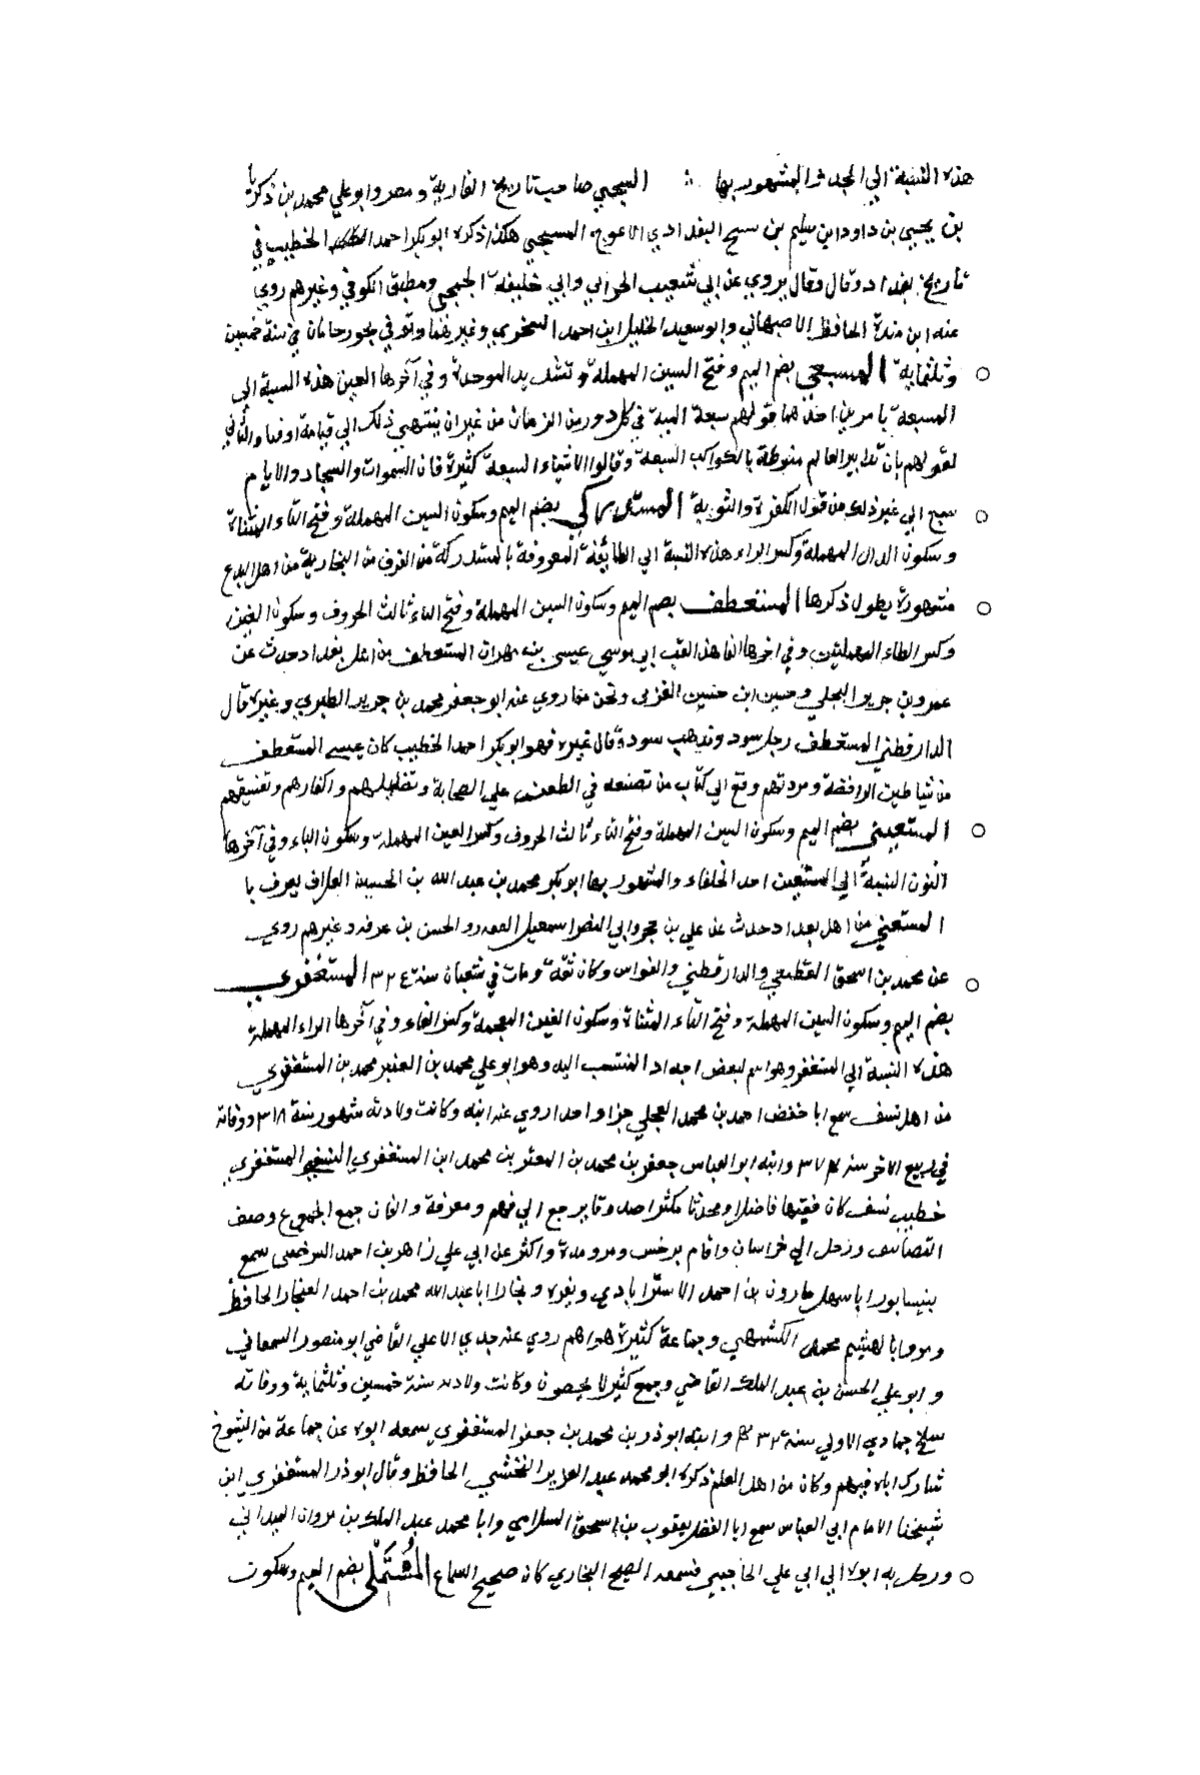 هذه النسبة الي الجد والمشهور بها ∴ المسبحي صاحب تاريخ المغاربة ومصر وابو علي محمد بن زكريا
بن يحيي بن داود ابن سليم بن مسبح البغدادي الاعرج المسبحي هكذا ذكره ابو بكر احمد الخطيب في
تاريخ بغداد وقال وقال يروي عن ابي شعيب الحراني وابي خليفة الجمحي ومطين الكوفي وغيرهم روي
عنه ابن مندة الحافظ الاصبهاني وابو سعيد الخليل ابن احمد السجزي وغيرهما وتوفي بجوزجانان في سنة خمسين
وثلثماية المسبعي بضم الميم وفتح السين المهملة وتشديد الموحدة وفي آخرها العين هذه النسبة الي
المسبعة بامرين احدهما قولهم سبعة ايمة في كل دور من الزمان من غير ان ينتهي ذلك الي قيامة او فنا والثاني
لقولهم بان تدابير العالم منوطة بالكواكب السبعة وقالوا الاشياء السبعة كثيرة فان السموات والبحار والايام
سبع الي غير ذلك من قول الكفرة والثنوية المستدركي بضم الميم وسكون السين المهملة وفتح التاء المثناة
وسكون الدال المهملة وكسر الراء هذه النسبة الي الطائفة المعروفة بالمستدركة من الفرق من النجارية من اهل البدع
مشهورة يطول ذكرها المستعطف بضم الميم وسكون السين المهملة وفتح التاء ثالث الحروف وسكون العين
وكسر الطاء المهملتين وفي اخرها الفا هذا لقب ابي موسي عيسي بن مهران المستعطف من اهل بغداد حدث عن
عمرو بن جرير البجلي وحسين ابن حسين العرني ونحوهما روي عنه ابو جعفر محمد بن جرير الطبري وغيره قال
الدارقطني المستعطف رجل سوء ومذهب سوء وقال غيره فهو ابو بكر احمد الخطيب كان عيسي المستعطف
من شياطين الرافضة ومردتهم وقع الي كتاب من تصنيفه في الطعن علي الصحابة وتضليلهم واكفارهم وتفسيقهم
المستعيني بضم الميم وسكون السين المهملة وفتح التاء ثالث الحروف وكسر العين المهملة وسكون الياء وفي آخرها
النون النسبة الي المستعين احد الخلفاء والمشهور بها ابو بكر محمد بن عبد الله بن الحسين العلاف يعرف با
المستعيني من اهل بغداد حدث عن علي بن حجر وابي النضر اسمعيل وحسن بن عرفة وغيرهم روي
عن محمد بن اسحق القطيعي والدارقطني والقواس وكان ثقة ومات في شعبان سنة ٣٢٤ المستغفري
بضم الميم وسكون السين المهملة وفتح التاء المثناة وسكون الغين المعجمة وكسر الفاء وفي آخرها الراء المهملة
هذه النسبة الي المستغفر وهو اسم لبعض اجداد المنتسب اليه وهو ابو علي محمد بن المعتز محمد بن المستغفري
من اهل نسف سمع ابا حفص احمد بن محمد العجلي جزا واحدا روي عنه ابنه وكانت ولادته شهور سنة ٣١٨ ووفاته
في ربيع الاخر سنة ٣٧٤ وابنه ابو العباس جعفر بن محمد بن المعتز بن محمد ابن المستغفري النسفي المستغفري
خطيب نسف كان فقيها فاضلا ومحدثا مكثرا صدوقا يرجع الي فهم ومعرفة واتقان جمع الجموع وصنف
التصانيف ورحل الي خراسان واقام بسرخس ومرو مدة واكثر عن ابي علي زاهر بن احمد السرخسي سمع
بنيسابور اباسهل هارون بن احمد الاستراباذي وبغيره وبخارا ابا عبد الله محمد بن احمد الغنجار الحافظ
ومرو ابا لهيثم محمد الكشمهيني وجماعة كثيرة سواهم روي عنه جدي الاعلي القاضي ابو منصور السمعاني
وابو علي الحسن بن عبد الملك القاضي وجمع كثير لا يحصون وكانت ولادته سنة خمسين وثلثماية ووفاته
سلخ جمادي الاولي سنة ٤٣٢ وابنه ابوذر بن محمد بن جعفر المستغفري سمعه ابوه عن جماعة من الشيوخ
شارك اباه فيهم وكان من اهل العلم ذكره ابو محمد عبد العزيز النخشبي الحافظ وقال ابوذر المستغفري ابن
شيخنا الامام ابي العباس سمع ابا الفضل يعقوب بن اسحق السلامي وابا محمد عبد الملك بن مروان الميداني
ورحل به ابوه الي ابي علي الحاجبي فسمعه الصحيح البخاري كان صحيح السماع المُستَملي بضم الميم وسكون